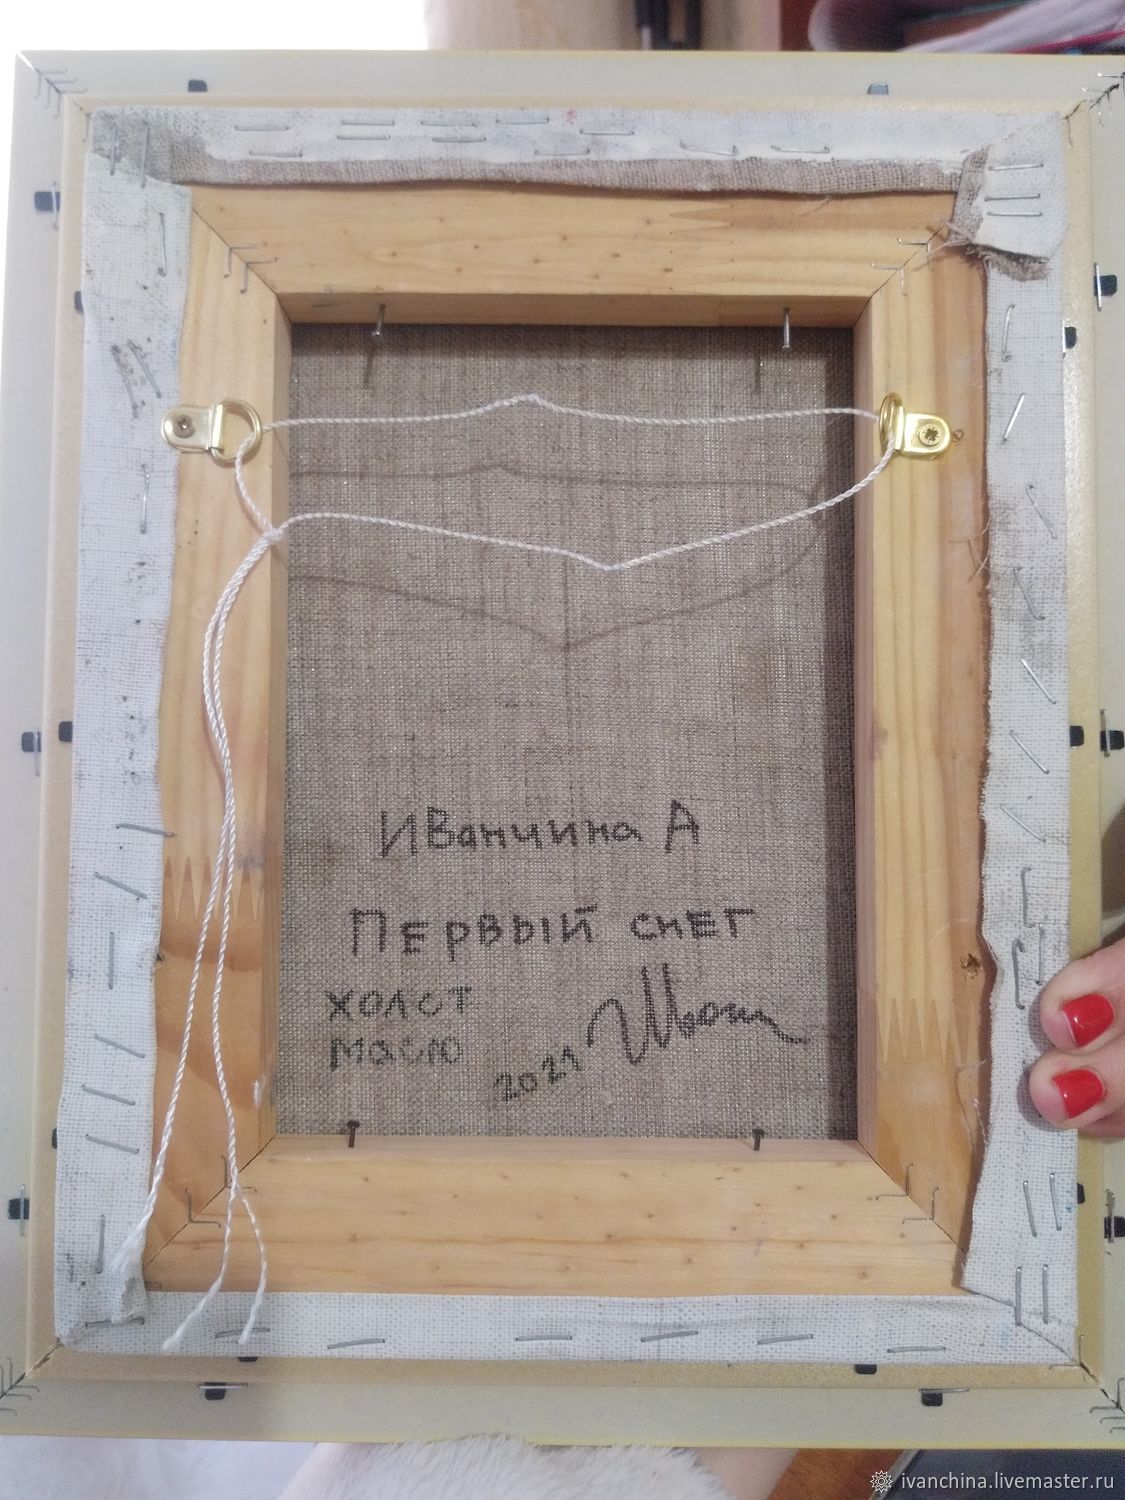 Иванчина А
Первый снег
холст
масло
2021
ivanchina.livemaster.ru